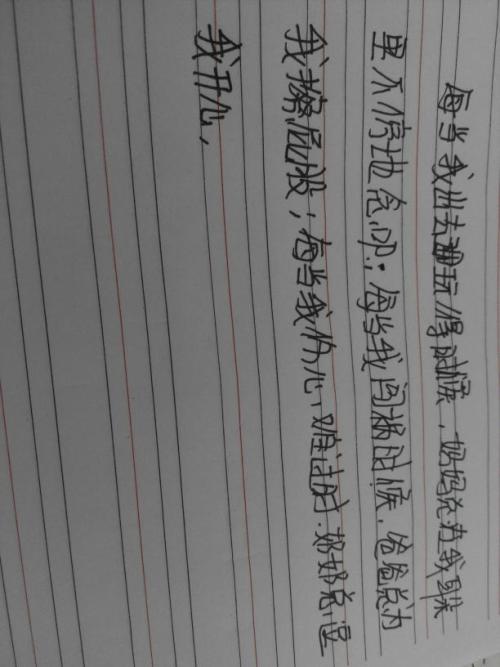 每当我出去遛玩得时候，妈妈总在我耳朵
里不停地念叨；每当我闯祸时候，爸爸总为
我擦屁股；每当我伤心，难过时，奶奶总逗
我开心，